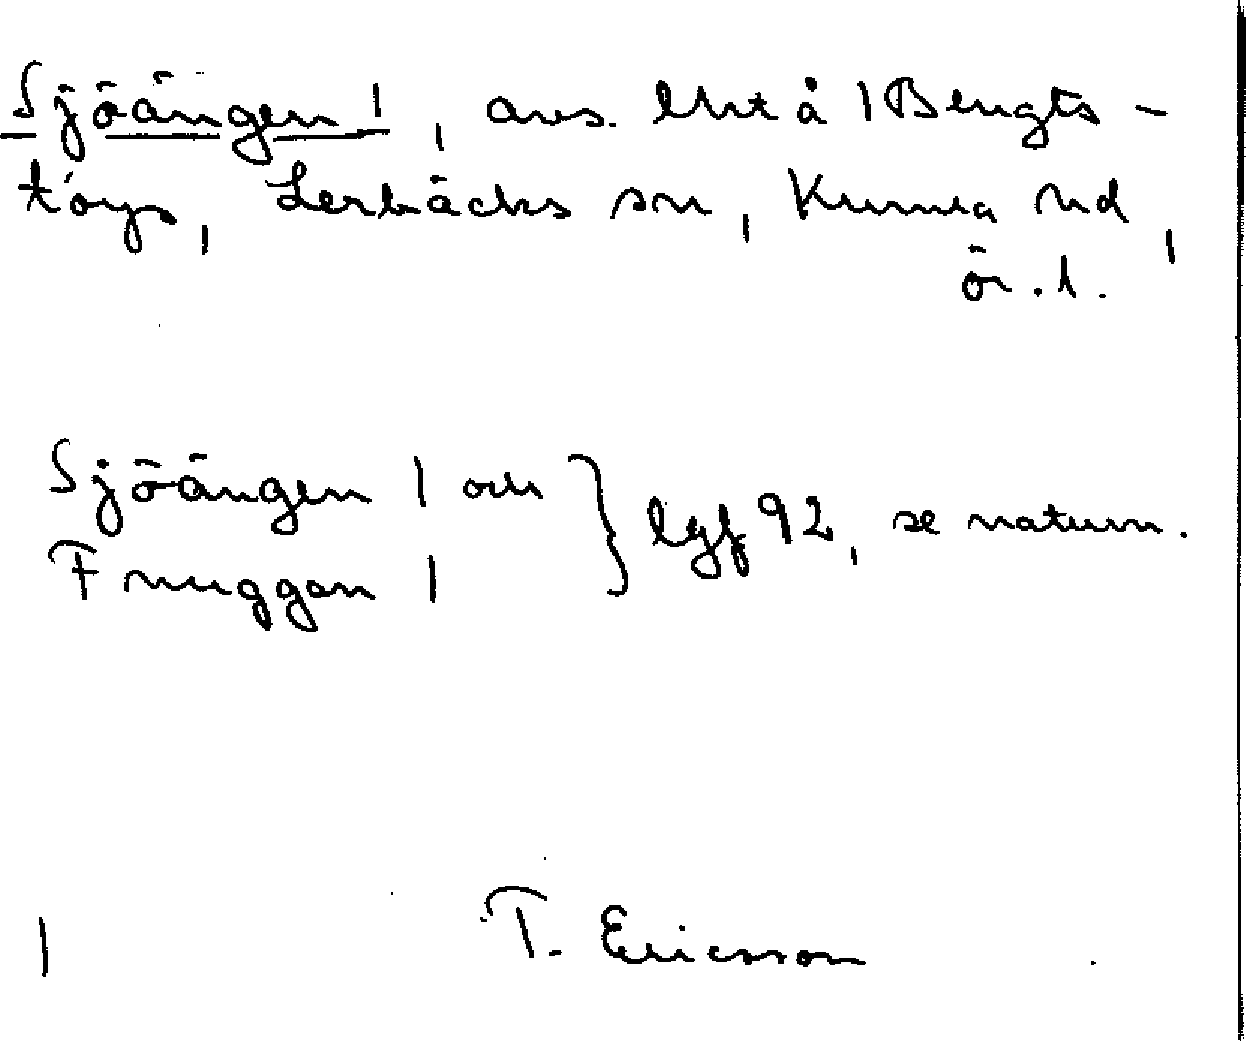 Sjöängen 1, avs. lht å 1 Bengts-
torp, Lerbäcks sn, Kumla hd,
ör. l.
Sjöängen 1 och
Fnuggan 1 } lgf 92, se naturn.
1 T. Ericsson